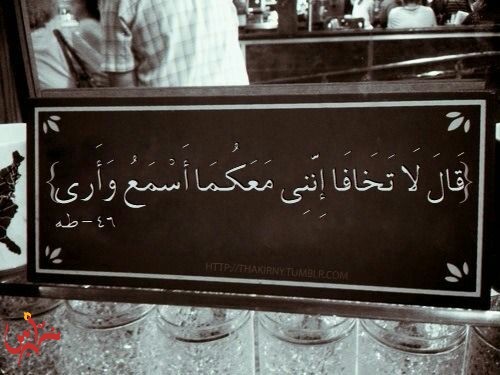 {قَالَ لَا تَخَافَا إِنَّنِى مَعَكُمَا أَسْمَعُ وَأَرَى}
٤٦-طه
HTTP://THAKIRNY.TUMBLR.COM